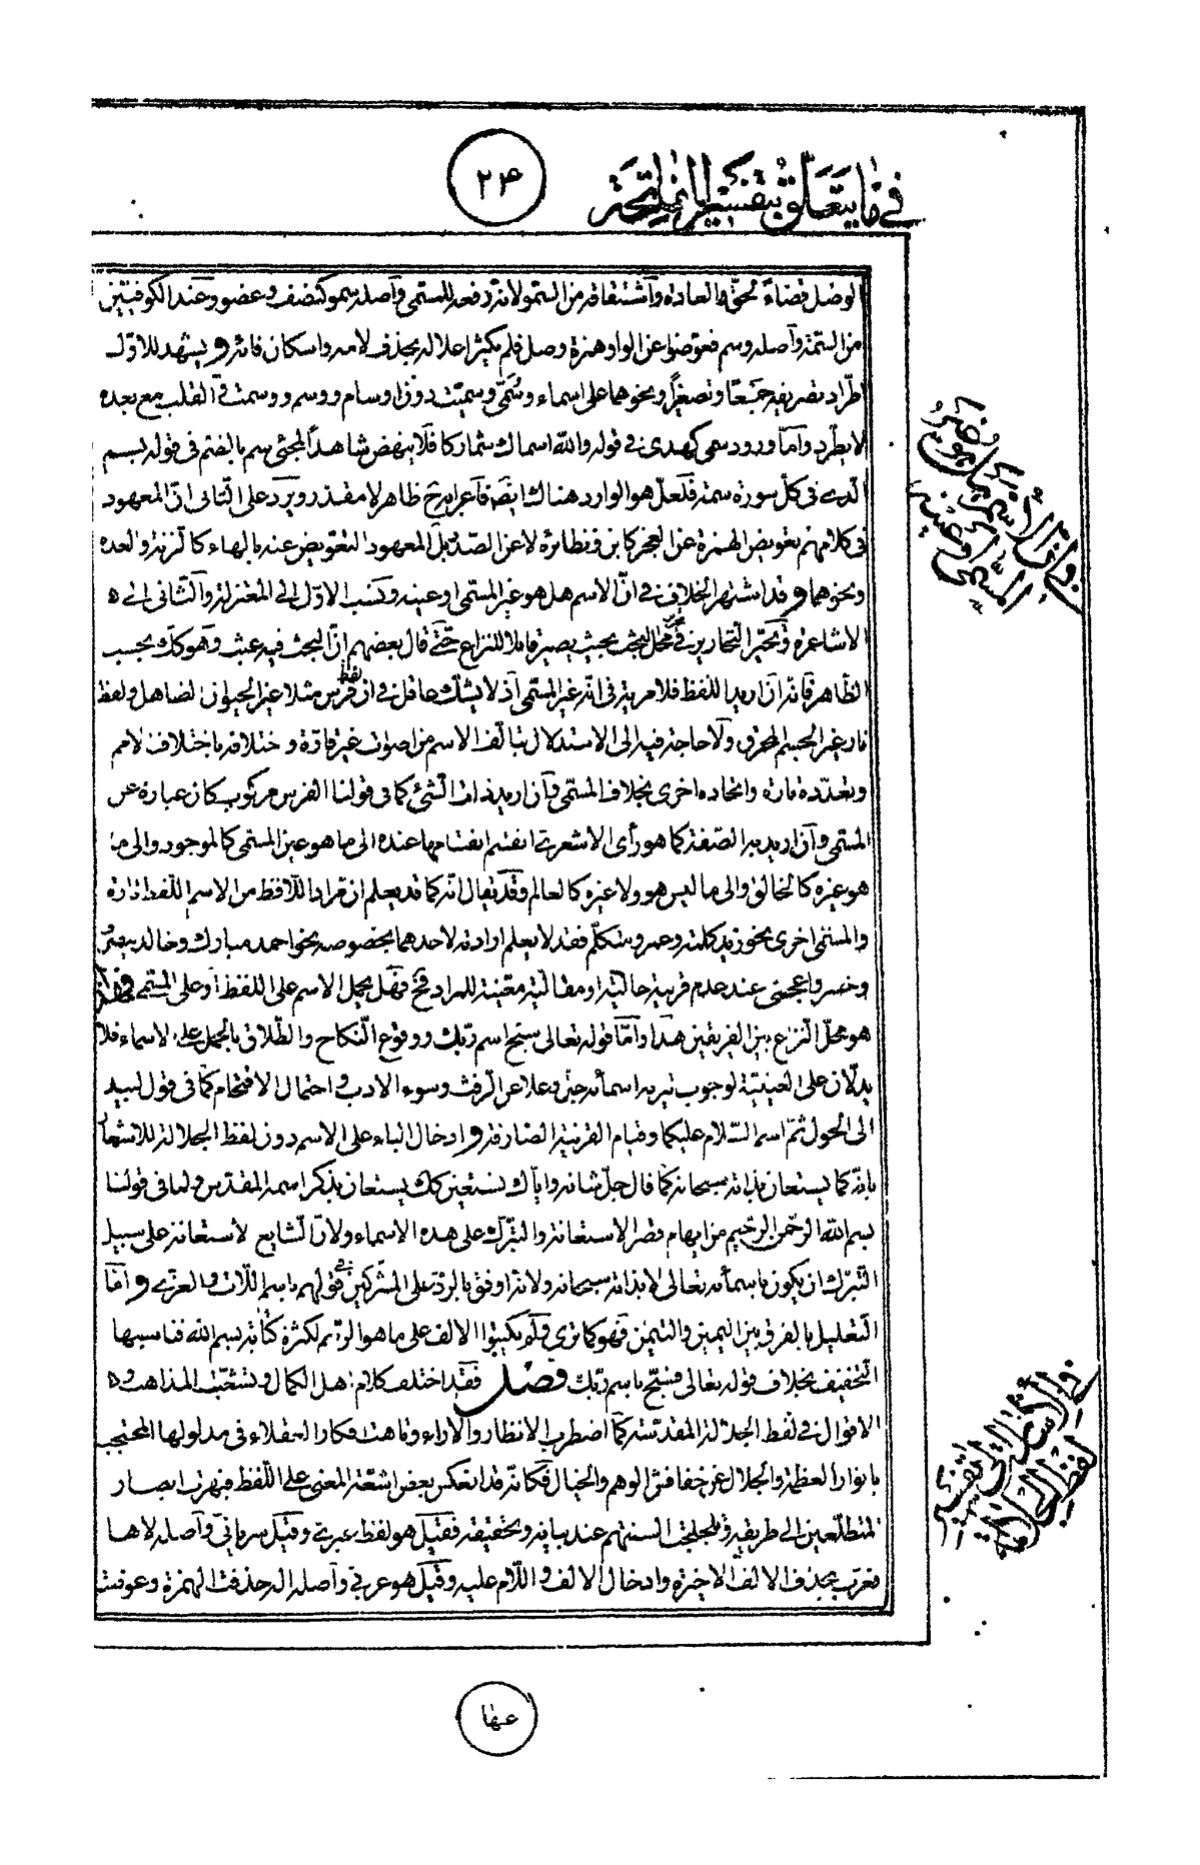 في ما يتعلق بتفسير الفاتحة
٢٤
الوصل قضاء لحق العادة واشتقاقه من السمو لانه رفعة للمسمى وأصله سمو كنضف وعضو وعند الكوفيين
من السمة وأصله وسم فعوضوا عن الواو همزة وصل فلم يكثر اعلاله بحذف لامه واسكان فائه ويشهد للاول
اطراد تصريفه جمعا وتصغيرا ونحوهما على اسماء وسمي وسميت دون اوسام ووسيم ووسمت في القلب مع بعده
لا يطرد واما ورود سمي كهدى في قوله والله اسماك سما مباركا فلا ينهض شاهدا لمجيء سم بالضم في قوله بسم
الذي في كل سورة سمه فلعل هو الوارد هناك ايضا فاعرابه ح ظاهر لا مقدر ويرد على الثاني ان المعهود
في كلامهم تعويض الهمزة عن العجز كابن ونظائره لا عن الصدر بل المعهود التعويض عنه بالهاء كالزنة والعدة
ونحوهما وقد اشتهر الخلاف في ان الاسم هل هو غير المسمى او عينه ونسب الاول الى المعتزلة والثاني الى
الاشاعرة وتحير النحارير في تحرير محل البحث بحيث يصير قابلا للنزاع حتى قال بعضهم ان البحث فيه عبث وهو كك بحسب
الظاهر فانه ان اريد اللفظ فلا مرية في انه غير المسمى اذ لا يشك عاقل في ان لفظ فرس مثلا غير الحيوان الصاهل ولفظ
نار غير الجسم المحرق ولا حاجة فيه الى الاستدلال بتالف الاسم من اصوات غير قارة واختلافه باختلاف الامم
وتعدده تارة واتحاده اخرى بخلاف المسمى وان اريد ذات الشيء كما في قولنا الفرس مركوب كان عبارة عن
المسمى وان اريد به الصفة كما هو رأى الاشعري انقسم انقسامها عنده الى ما هو عين المسمى كالموجود والى ما
هو غيره كالخالق والى ما ليس هو ولا غيره كالعالم وقد يقال انه كما قد يعلم ان مراد اللافظ من الاسم اللفظ تارة
والمسمى اخرى نحو زيد كلمة وعمرو متكلم فقد لا يعلم ارادته لاحدهما بخصوصه نحو احمد مبارك وخالد
عند عدم قرينة حالية او مقالية معينة للمراد فح فهل يحمل الاسم على اللفظ او على المسمى فهذا
هو محل النزاع بين الفريقين هذا واما قوله تعالى سبح اسم ربك ووقوع النكاح والطلاق بالحمل على الاسماء فلا
يدلان على العينية لوجوب تنزيه اسمائه جل وعلا عن الرفث وسوء الادب واحتمال الاقحام كما في قول لبيد
الى الحول ثم اسم السلام عليكما وقيام القرينة الصارفة وادخال الباء على الاسم دون لفظ الجلالة للاشعار
بانه كما يستعان بذاته سبحانه كما قال جل شانه واياك نستعين كك يستعان بذكر اسمه المقدس ولما في قولنا
بسم الله الرحمن الرحيم من ايهام قصر الاستعانة والتبرك على هذه الاسماء ولان الشايع الاستعانة على سبيل
التبرك ان يكون باسمائه تعالى لا بذاته سبحانه ولانه اوفق بالرد على المشركين في قولهم باسم اللات والعزى واما
التعليل بالفرق بين اليمين والتيمن فهو كما ترى ولم يكتبوا الالف على ما هو الرسم لكثرة كتابة بسم الله فناسبها
التخفيف بخلاف قوله تعالى فسبح باسم ربك فصل فقد اختلف كلام اهل الكمال وتشعبت المذاهب و
الاقوال في لفظ الجلالة المقدسة كما اضطرب الانظار والاراء وتاهت افكار العقلاء في مدلولها المحتجب
بانوار العظمة والجلال عن خفافيش الوهم والخيال فكانه قد انعكس بعض اشعة المعنى على اللفظ فبهرت ابصار
المتطلعين الى طريقه وتلجلجت السنتهم عند بيانه وتحقيقه فقيل هو لفظ عبري وقيل سرياني وأصله لاها
فعرب بحذف الالف الاخيرة وادخال الالف واللام عليه وقيل هو عربي وأصله اله حذفت الهمزة وعوضت
في ان الاسم هل هو غير
المسمى او عينه
في الاسماء التي تفسير
لفظ الجلالة
عنها